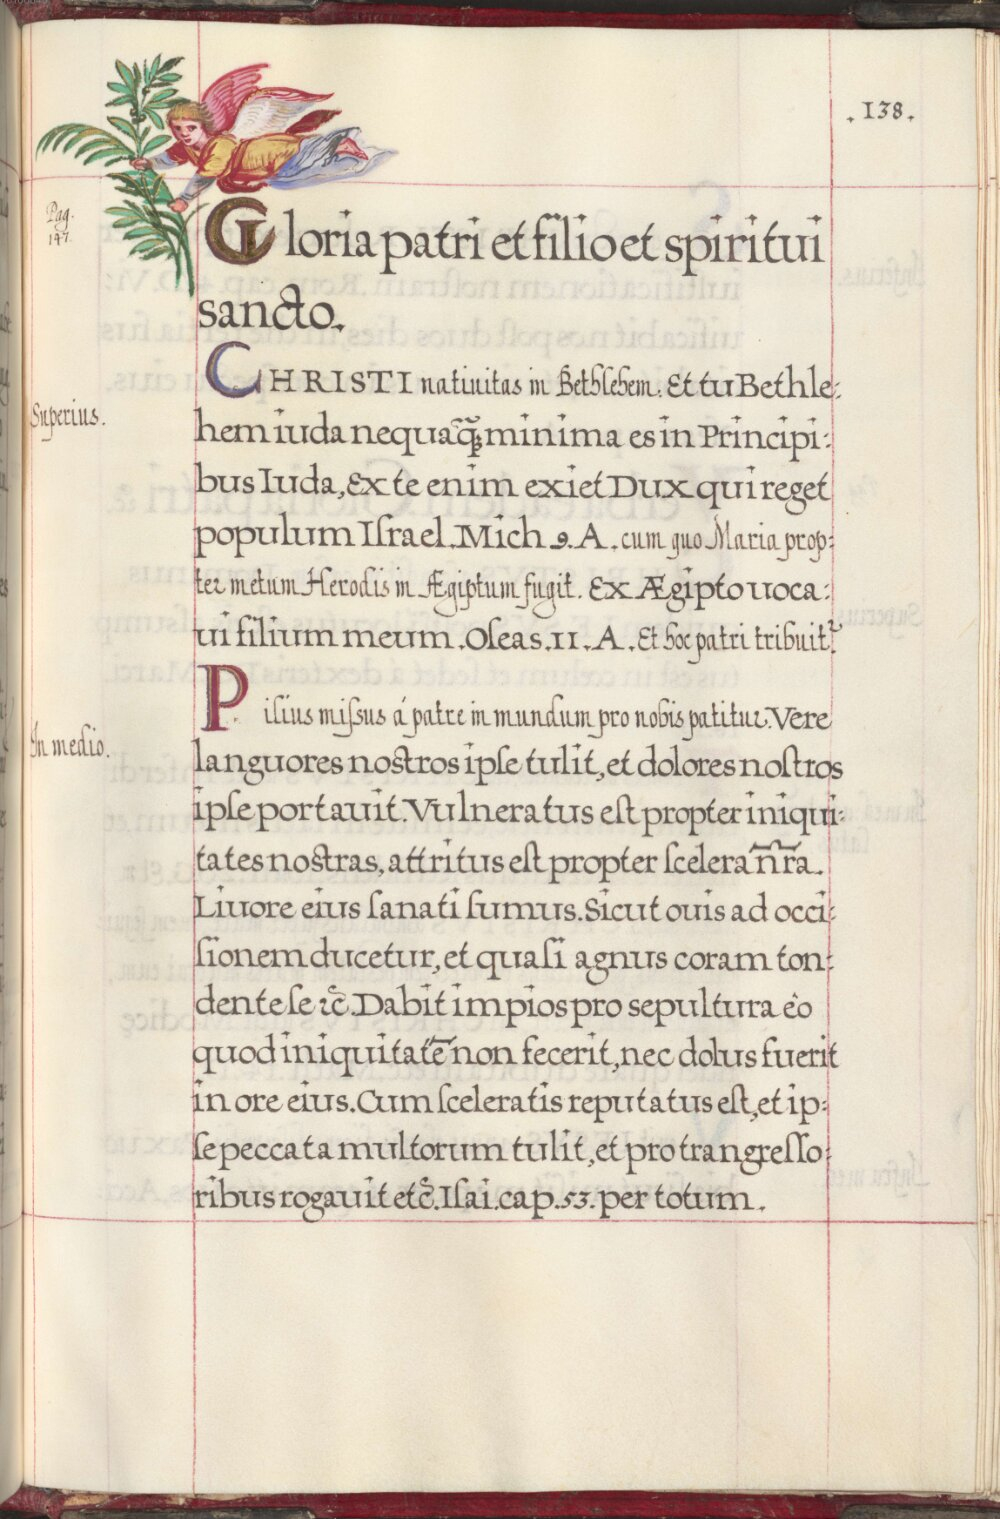 .138.
Pag.
147.
Gloria patri et filio et spiritui
sancto.
Superius.
CHRISTI natiuitas in Bethlehem. Et tu Bethle:
hem iuda nequaq̃ʒ minima es in Principi:
bus Iuda, Ex te enim exiet Dux qui reget
populum Iſrael. Mich 9. A. cum quo Maria prop:
ter metum Herodis in Ægiptum fugit. Ex Ægipto uoca:
ui filium meum. Oſeas. 11. A. Et hoc patri tribuitᷣ.
In medio.
Pilius miſsus á patre in mundum pro nobis patitur. Vere
languores nostros ipſe tulit, et dolores noſtros
ipſe portauit. Vulneratus eſt propter iniqui:
tates nostras, attritus eſt propter ſcelera nr̃a.
Liuore eius ſanati ſumus. Sicut ouis ad occi:
ſionem ducetur, et quaſi agnus coram ton:
dente ſe ꝛc̃. Dabit impios pro sepultura eò
quod iniquitatẽ non fecerit, nec dolus fuerit
in ore eius. Cum ſceleratis reputatus eſt, et ip:
ſe peccata multorum tulit, et pro trangreſſo:
ribus rogauit etc̃. Iſai. cap. 53. per totum.